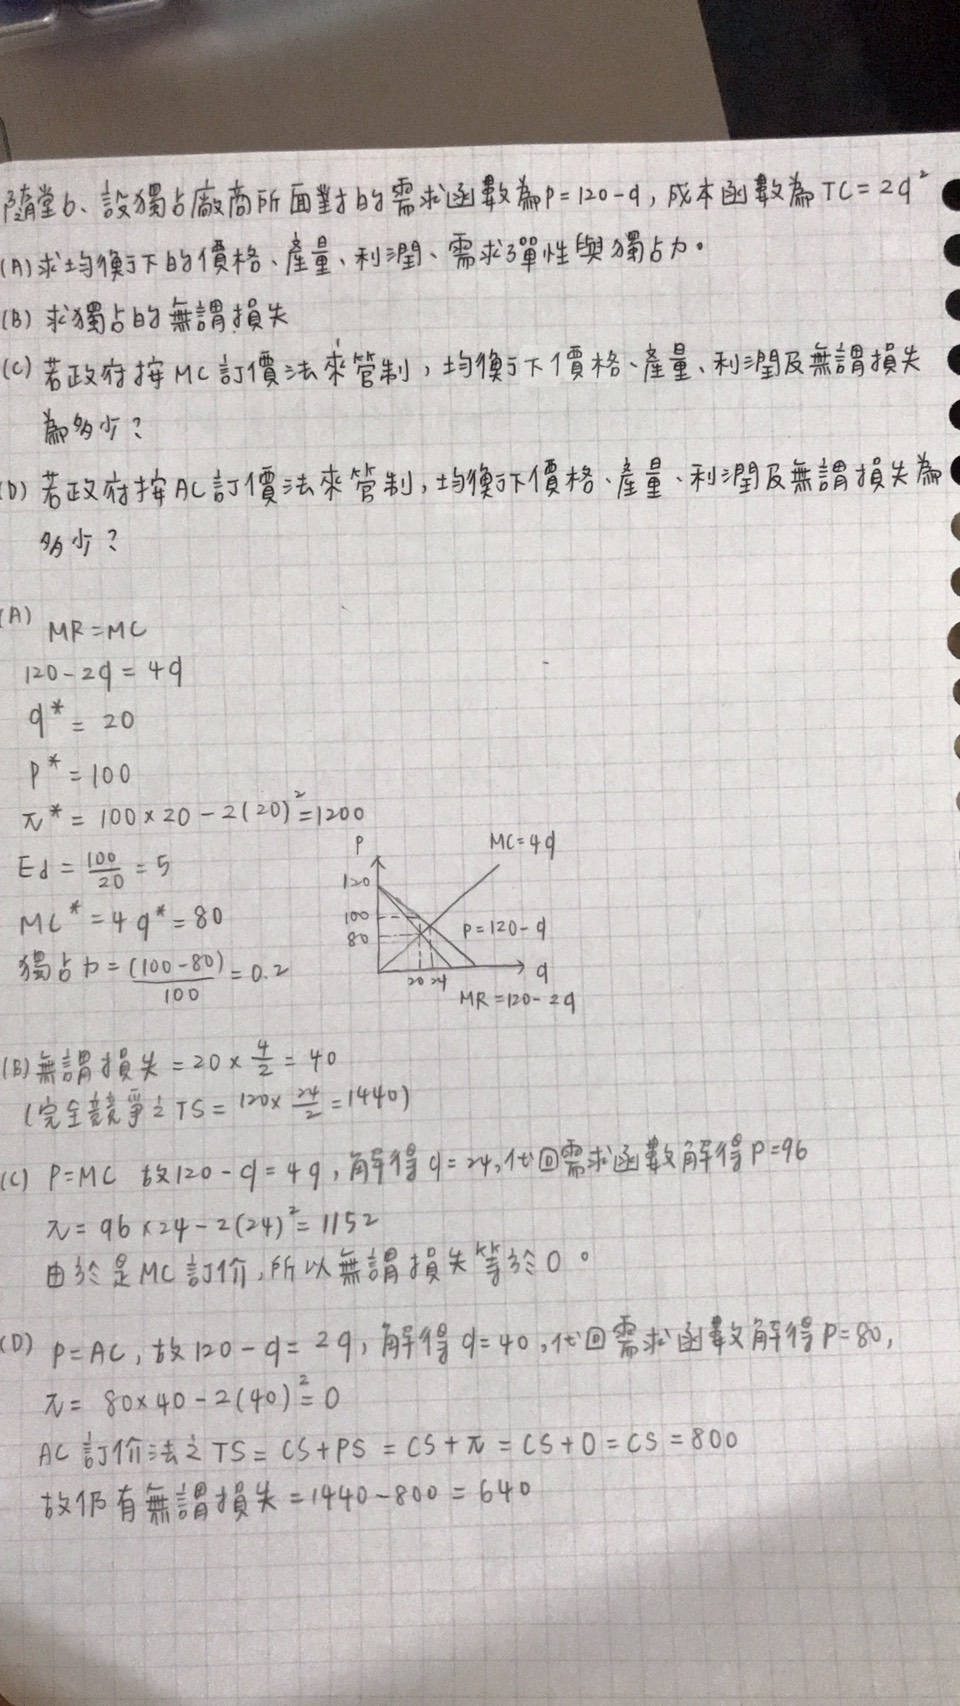 隨堂6、設獨占廠商所面對的需求函數為P=120-q,成本函數為TC=2q²
(A)求均衡下的價格、產量、利潤、需求彈性與獨占力。
(B)求獨占的無謂損失
(C)若政府按MC訂價法來管制,均衡下價格、產量、利潤及無謂損失
為多少?
(D)若政府按AC訂價法來管制,均衡下價格、產量、利潤及無謂損失為
多少?
(A) MR=MC
120-2q=4q
q*=20
P*=100
π*=100×20-2(20)²=1200
Ed=100/20=5
MC*=4q*=80
獨占力=(100-80)/100=0.2
P
MC=4q
120
100
80
P=120-q
20 24
q
MR=120-2q
(B)無謂損失=20×4/2=40
(完全競爭之TS=120×24/2=1440)
(C) P=MC 故120-q=4q,解得q=24,代回需求函數解得P=96
π=96×24-2(24)²=1152
由於是MC訂价,所以無謂損失等於0。
(D) P=AC,故120-q=2q,解得q=40,代回需求函數解得P=80,
π=80×40-2(40)²=0
AC訂价法之TS=CS+PS=CS+π=CS+0=CS=800
故仍有無謂損失=1440-800=640